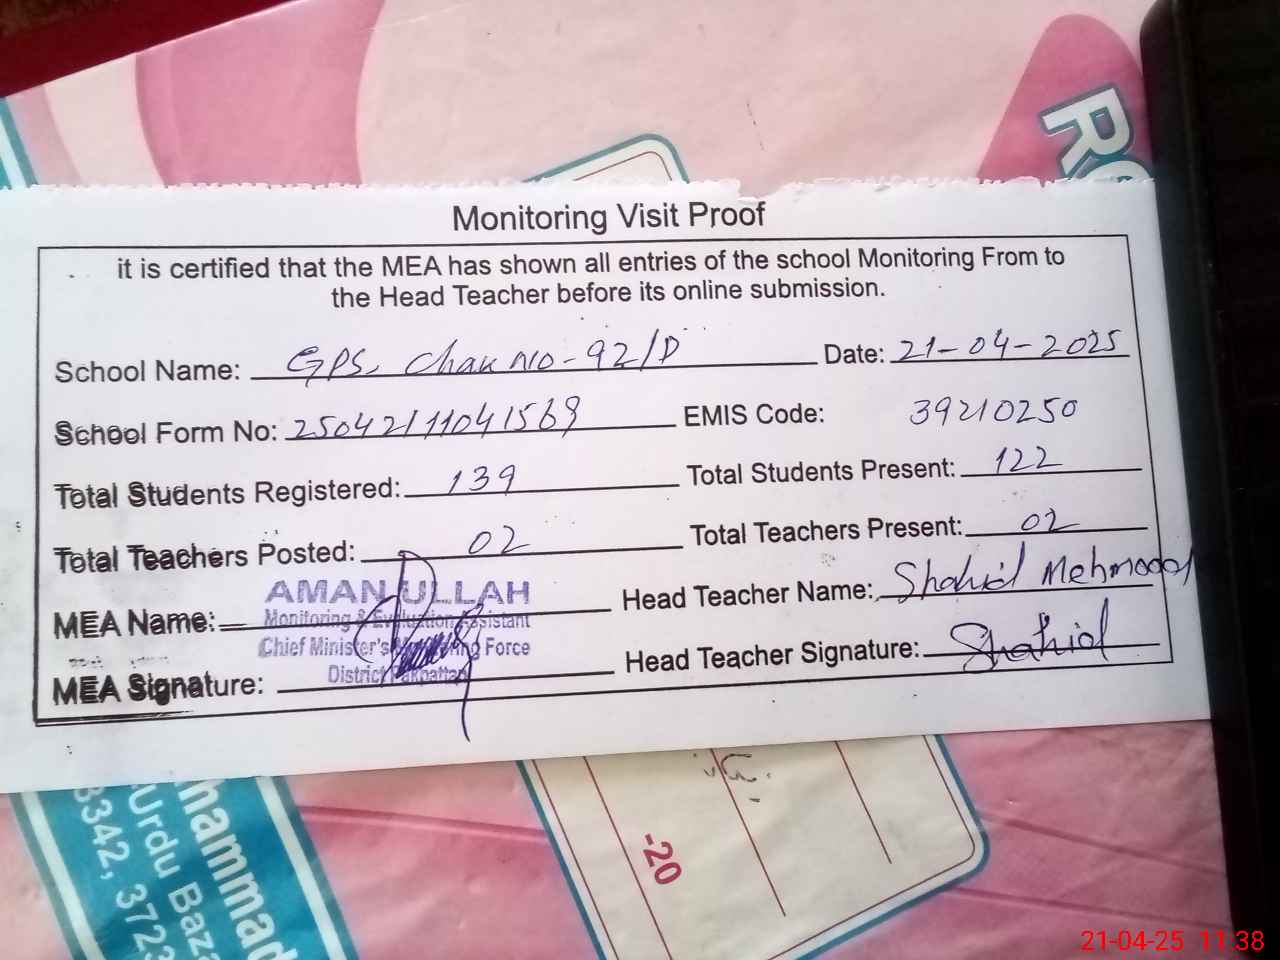 RO
Monitoring Visit Proof
it is certified that the MEA has shown all entries of the school Monitoring From to
the Head Teacher before its online submission.
School Name: GPS, Chak no-92/D Date: 21-04-2025
School Form No: 25042111041569 EMIS Code: 39210250
Total Students Registered: 139 Total Students Present: 122
Total Teachers Posted: 02 Total Teachers Present: 02
MEA Name: AMAN ULLAH Head Teacher Name: Shahid Mehmood
Monitoring & Evaluation Assistant
Chief Minister's Monitoring Force
District Pakpattan
MEA Signature: Head Teacher Signature: Shahid
hammad
Urdu Baza
3342, 3723
-20
21-04-25 11:38